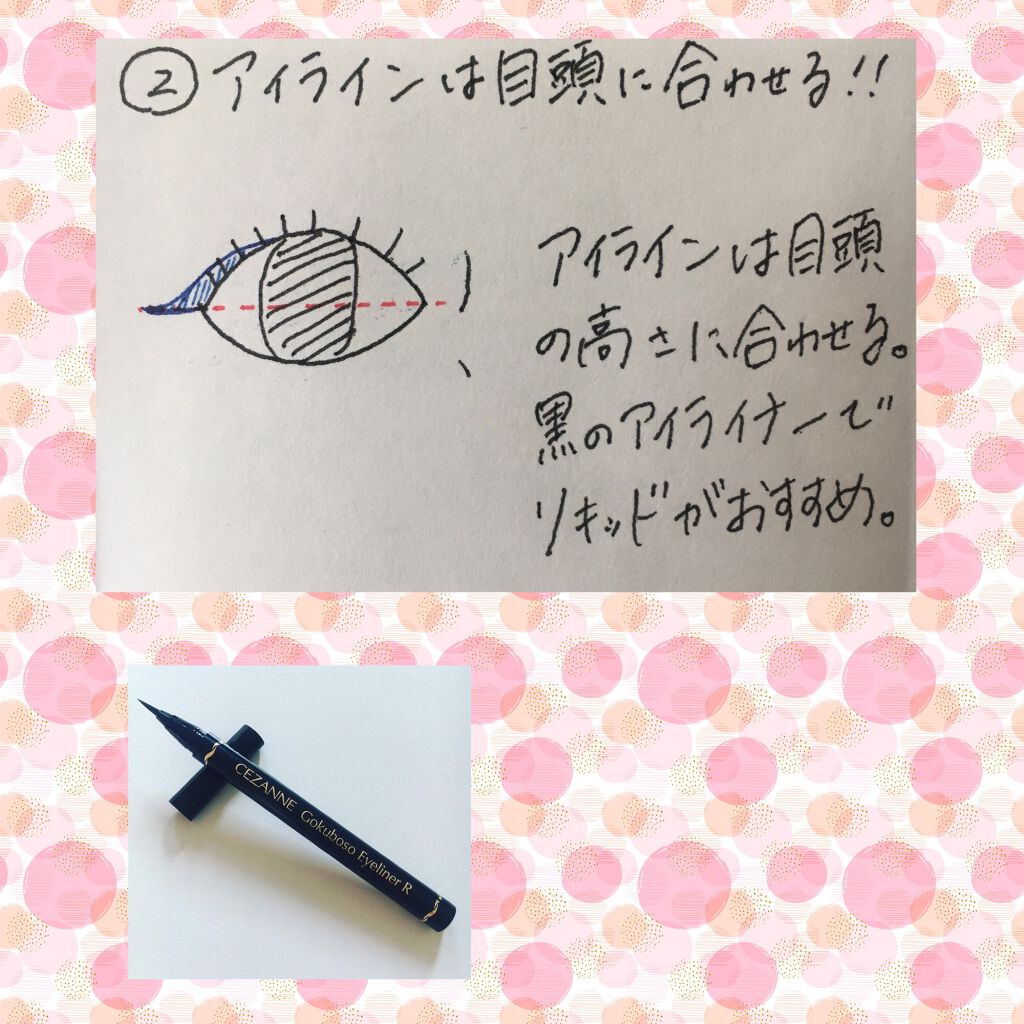 ②アイラインは目頭に合わせる!!
アイラインは目頭
の高さに合わせる。
黒のアイライナーで
リキッドがおすすめ。
CEZANNE Gokuboso Eyeliner R